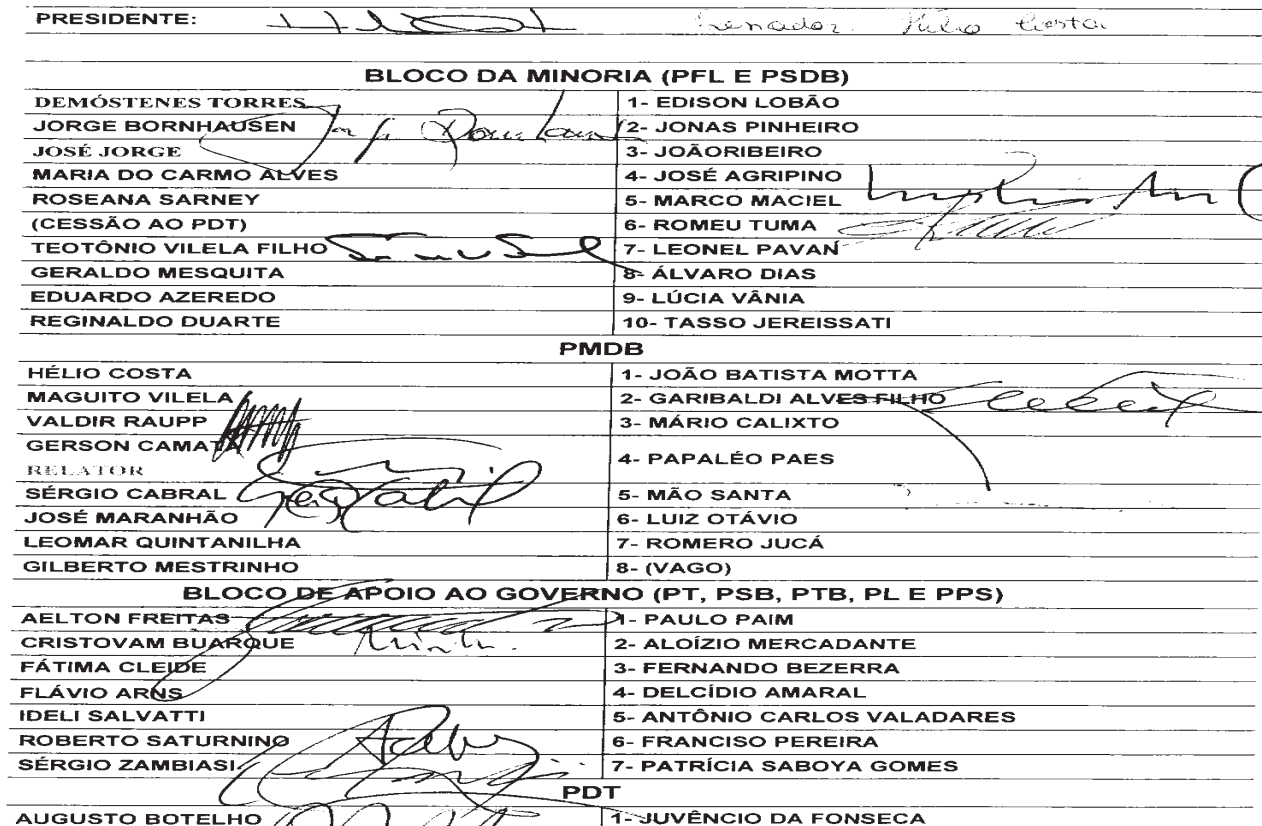 PRESIDENTE: Senador Hélio Costa
BLOCO DA MINORIA (PFL E PSDB)
DEMÓSTENES TORRES 1- EDISON LOBÃO
JORGE BORNHAUSEN 2- JONAS PINHEIRO
JOSÉ JORGE 3- JOÃORIBEIRO
MARIA DO CARMO ALVES 4- JOSÉ AGRIPINO
ROSEANA SARNEY 5- MARCO MACIEL
(CESSÃO AO PDT) 6- ROMEU TUMA
TEOTÔNIO VILELA FILHO 7- LEONEL PAVAN
GERALDO MESQUITA 8- ÁLVARO DIAS
EDUARDO AZEREDO 9- LÚCIA VÂNIA
REGINALDO DUARTE 10- TASSO JEREISSATI
PMDB
HÉLIO COSTA 1- JOÃO BATISTA MOTTA
MAGUITO VILELA 2- GARIBALDI ALVES FILHO
VALDIR RAUPP 3- MÁRIO CALIXTO
GERSON CAMATA 4- PAPALÉO PAES
RELATOR
SÉRGIO CABRAL 5- MÃO SANTA
JOSÉ MARANHÃO 6- LUIZ OTÁVIO
LEOMAR QUINTANILHA 7- ROMERO JUCÁ
GILBERTO MESTRINHO 8- (VAGO)
BLOCO DE APOIO AO GOVERNO (PT, PSB, PTB, PL E PPS)
AELTON FREITAS 1- PAULO PAIM
CRISTOVAM BUARQUE 2- ALOÍZIO MERCADANTE
FÁTIMA CLEIDE 3- FERNANDO BEZERRA
FLÁVIO ARNS 4- DELCÍDIO AMARAL
IDELI SALVATTI 5- ANTÔNIO CARLOS VALADARES
ROBERTO SATURNINO 6- FRANCISO PEREIRA
SÉRGIO ZAMBIASI 7- PATRÍCIA SABOYA GOMES
PDT
AUGUSTO BOTELHO 1- JUVÊNCIO DA FONSECA